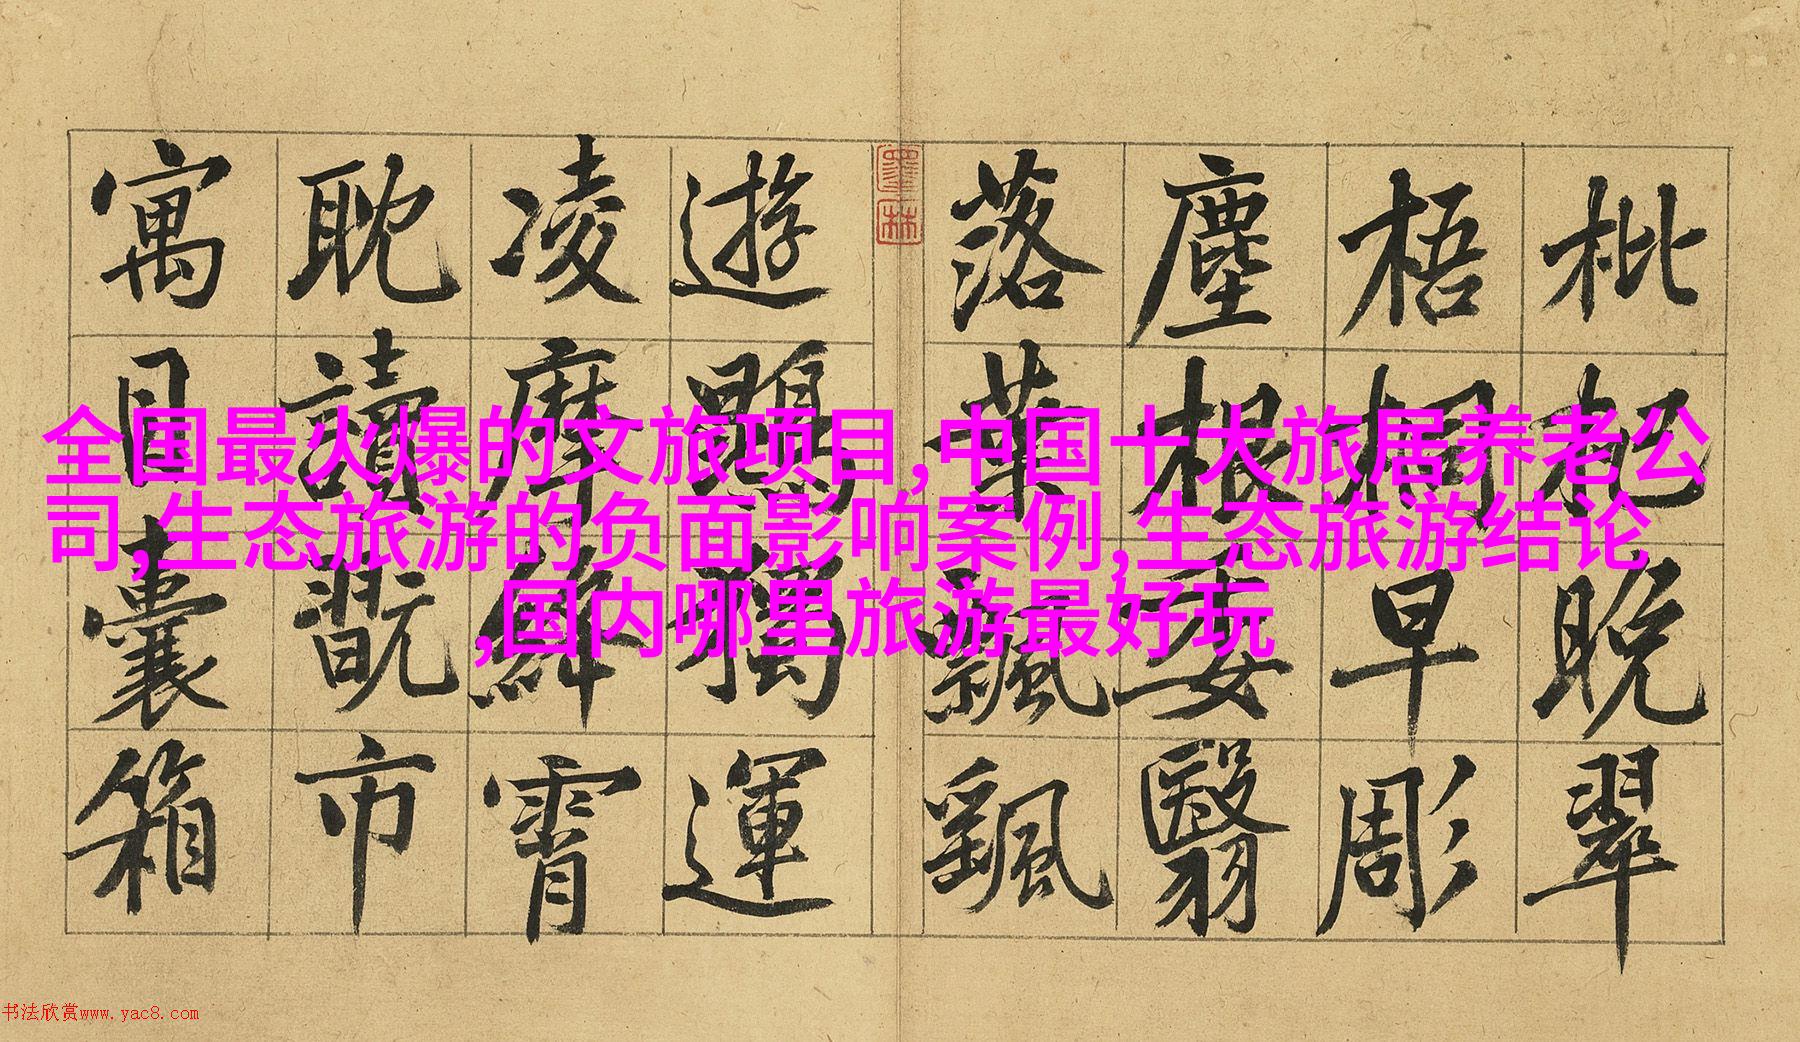 全国最火爆的文旅项目,中国十大旅居养老公
司,生态旅游的负面影响案例,生态旅游结论
,国内哪里旅游最好玩
枇杷晚翠
梧桐早彫
塵根委翳
落葉飄颻
遊鵾獨運
凌摩絳霄
耽讀翫市
寓目囊箱
墨林
书法欣赏www.yac8.com